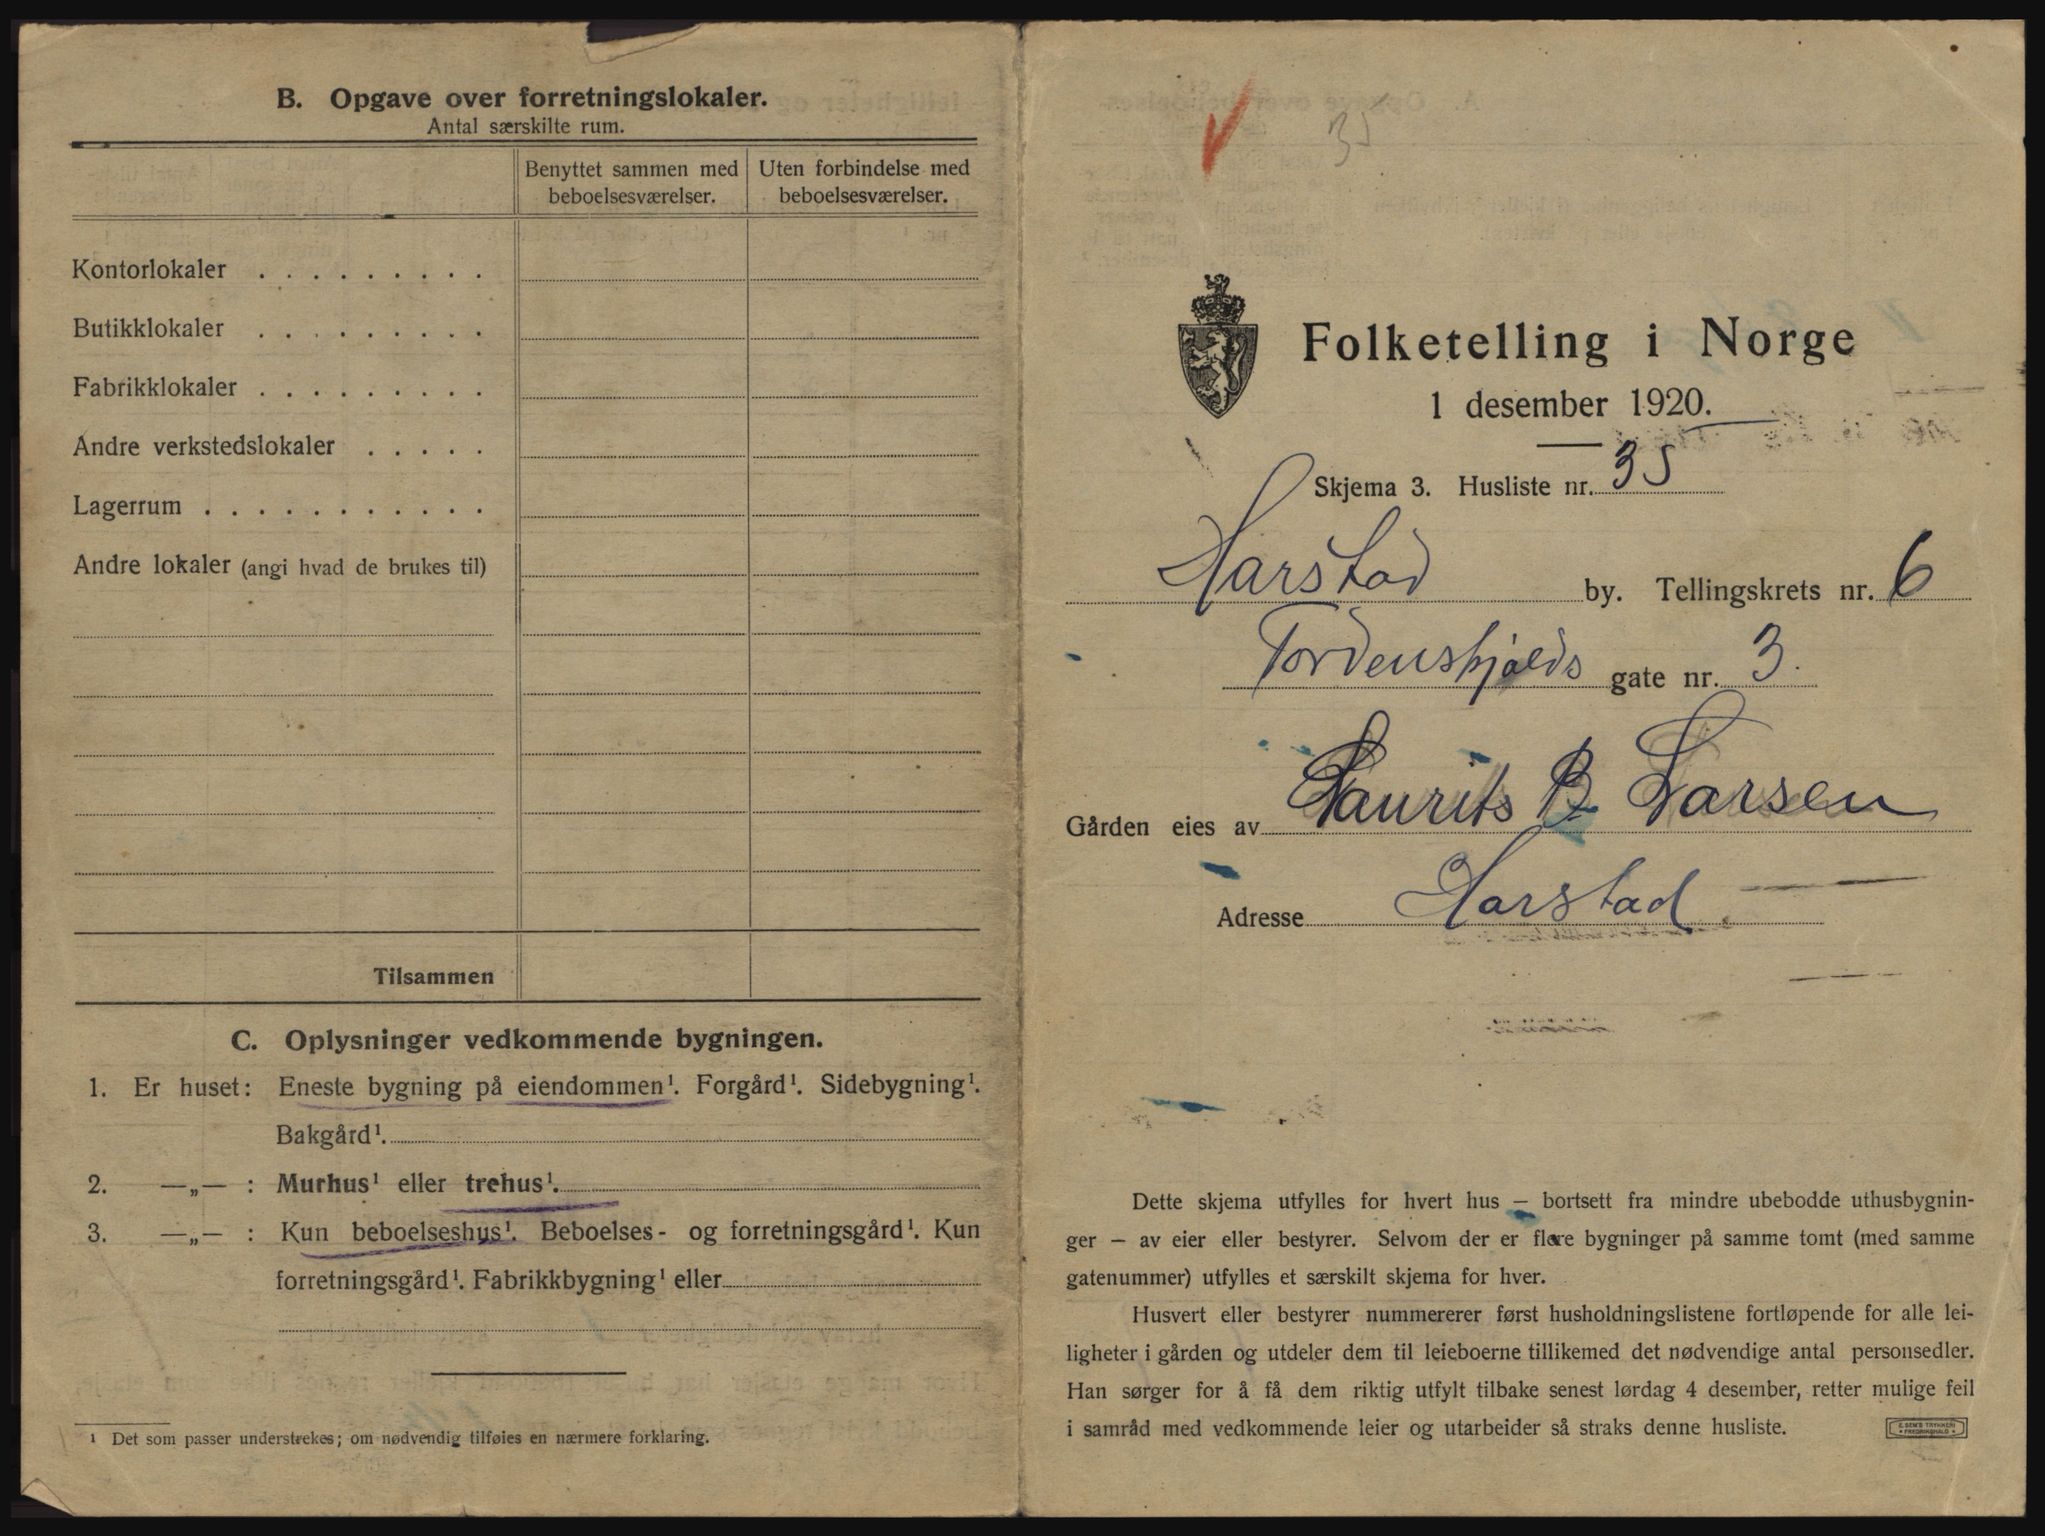 B. Opgave over forretningslokaler.
Antal særskilte rum.
Benyttet sammen med beboelsesværelser.
Uten forbindelse med beboelsesværelser.
Kontorlokaler . . . . . . . . .
Butikklokaler . . . . . . . . .
Fabrikklokaler . . . . . . . . .
Andre verkstedslokaler . . . . .
Lagerrum . . . . . . . . . . .
Andre lokaler (angi hvad de brukes til)
Tilsammen
C. Oplysninger vedkommende bygningen.
1. Er huset: Eneste bygning på eiendommen¹. Forgård¹. Sidebygning¹.
Bakgård¹.
2. —„— : Murhus¹ eller trehus¹.
3. —„— : Kun beboelseshus¹. Beboelses- og forretningsgård¹. Kun
forretningsgård¹. Fabrikkbygning¹ eller
¹ Det som passer understrekes; om nødvendig tilføies en nærmere forklaring.
35
Folketelling i Norge
1 desember 1920.
Skjema 3. Husliste nr. 35
Harstad by. Tellingskrets nr. 6
Tordenskjolds gate nr. 3.
Gården eies av Laurits B. Larsen
Adresse Harstad.
Dette skjema utfylles for hvert hus — bortsett fra mindre ubebodde uthusbygnin-
ger — av eier eller bestyrer. Selvom der er flere bygninger på samme tomt (med samme
gatenummer) utfylles et særskilt skjema for hver.
Husvert eller bestyrer nummererer først husholdningslistene fortløpende for alle lei-
ligheter i gården og utdeler dem til leieboerne tillikemed det nødvendige antal personsedler.
Han sørger for å få dem riktig utfylt tilbake senest lørdag 4 desember, retter mulige feil
i samråd med vedkommende leier og utarbeider så straks denne husliste.
E. SEM'S TRYKKERI
• FREDRIKSHALD •